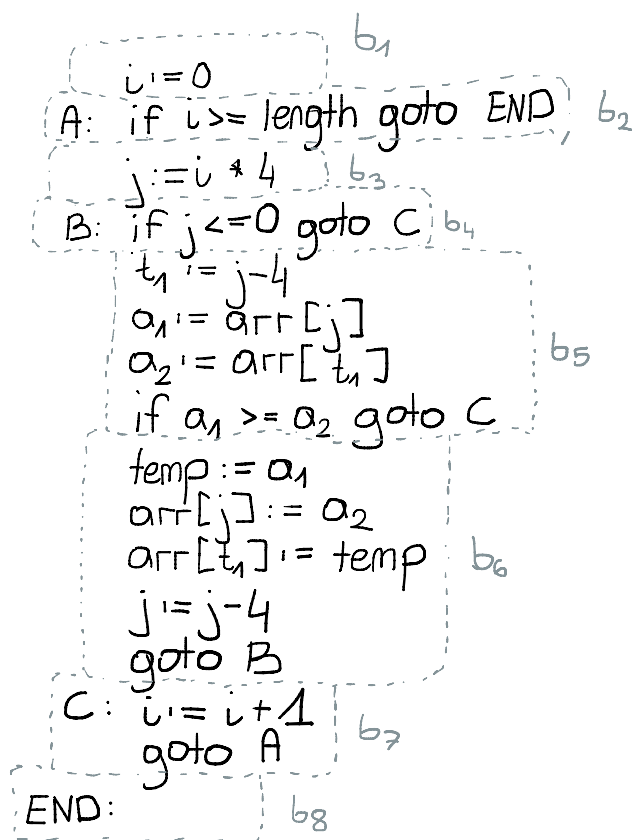 b1
i:=0
A: if i>= length goto END b2
j:=i * 4 b3
B: if j<=0 goto C b4
t1 := j-4
a1:= arr[j]
a2:= arr[t1] b5
if a1 >= a2 goto C
temp:= a1
arr[j]:= a2
arr[t1]:= temp b6
j:= j-4
goto B
C: i:= i+1 b7
goto A
END: b8